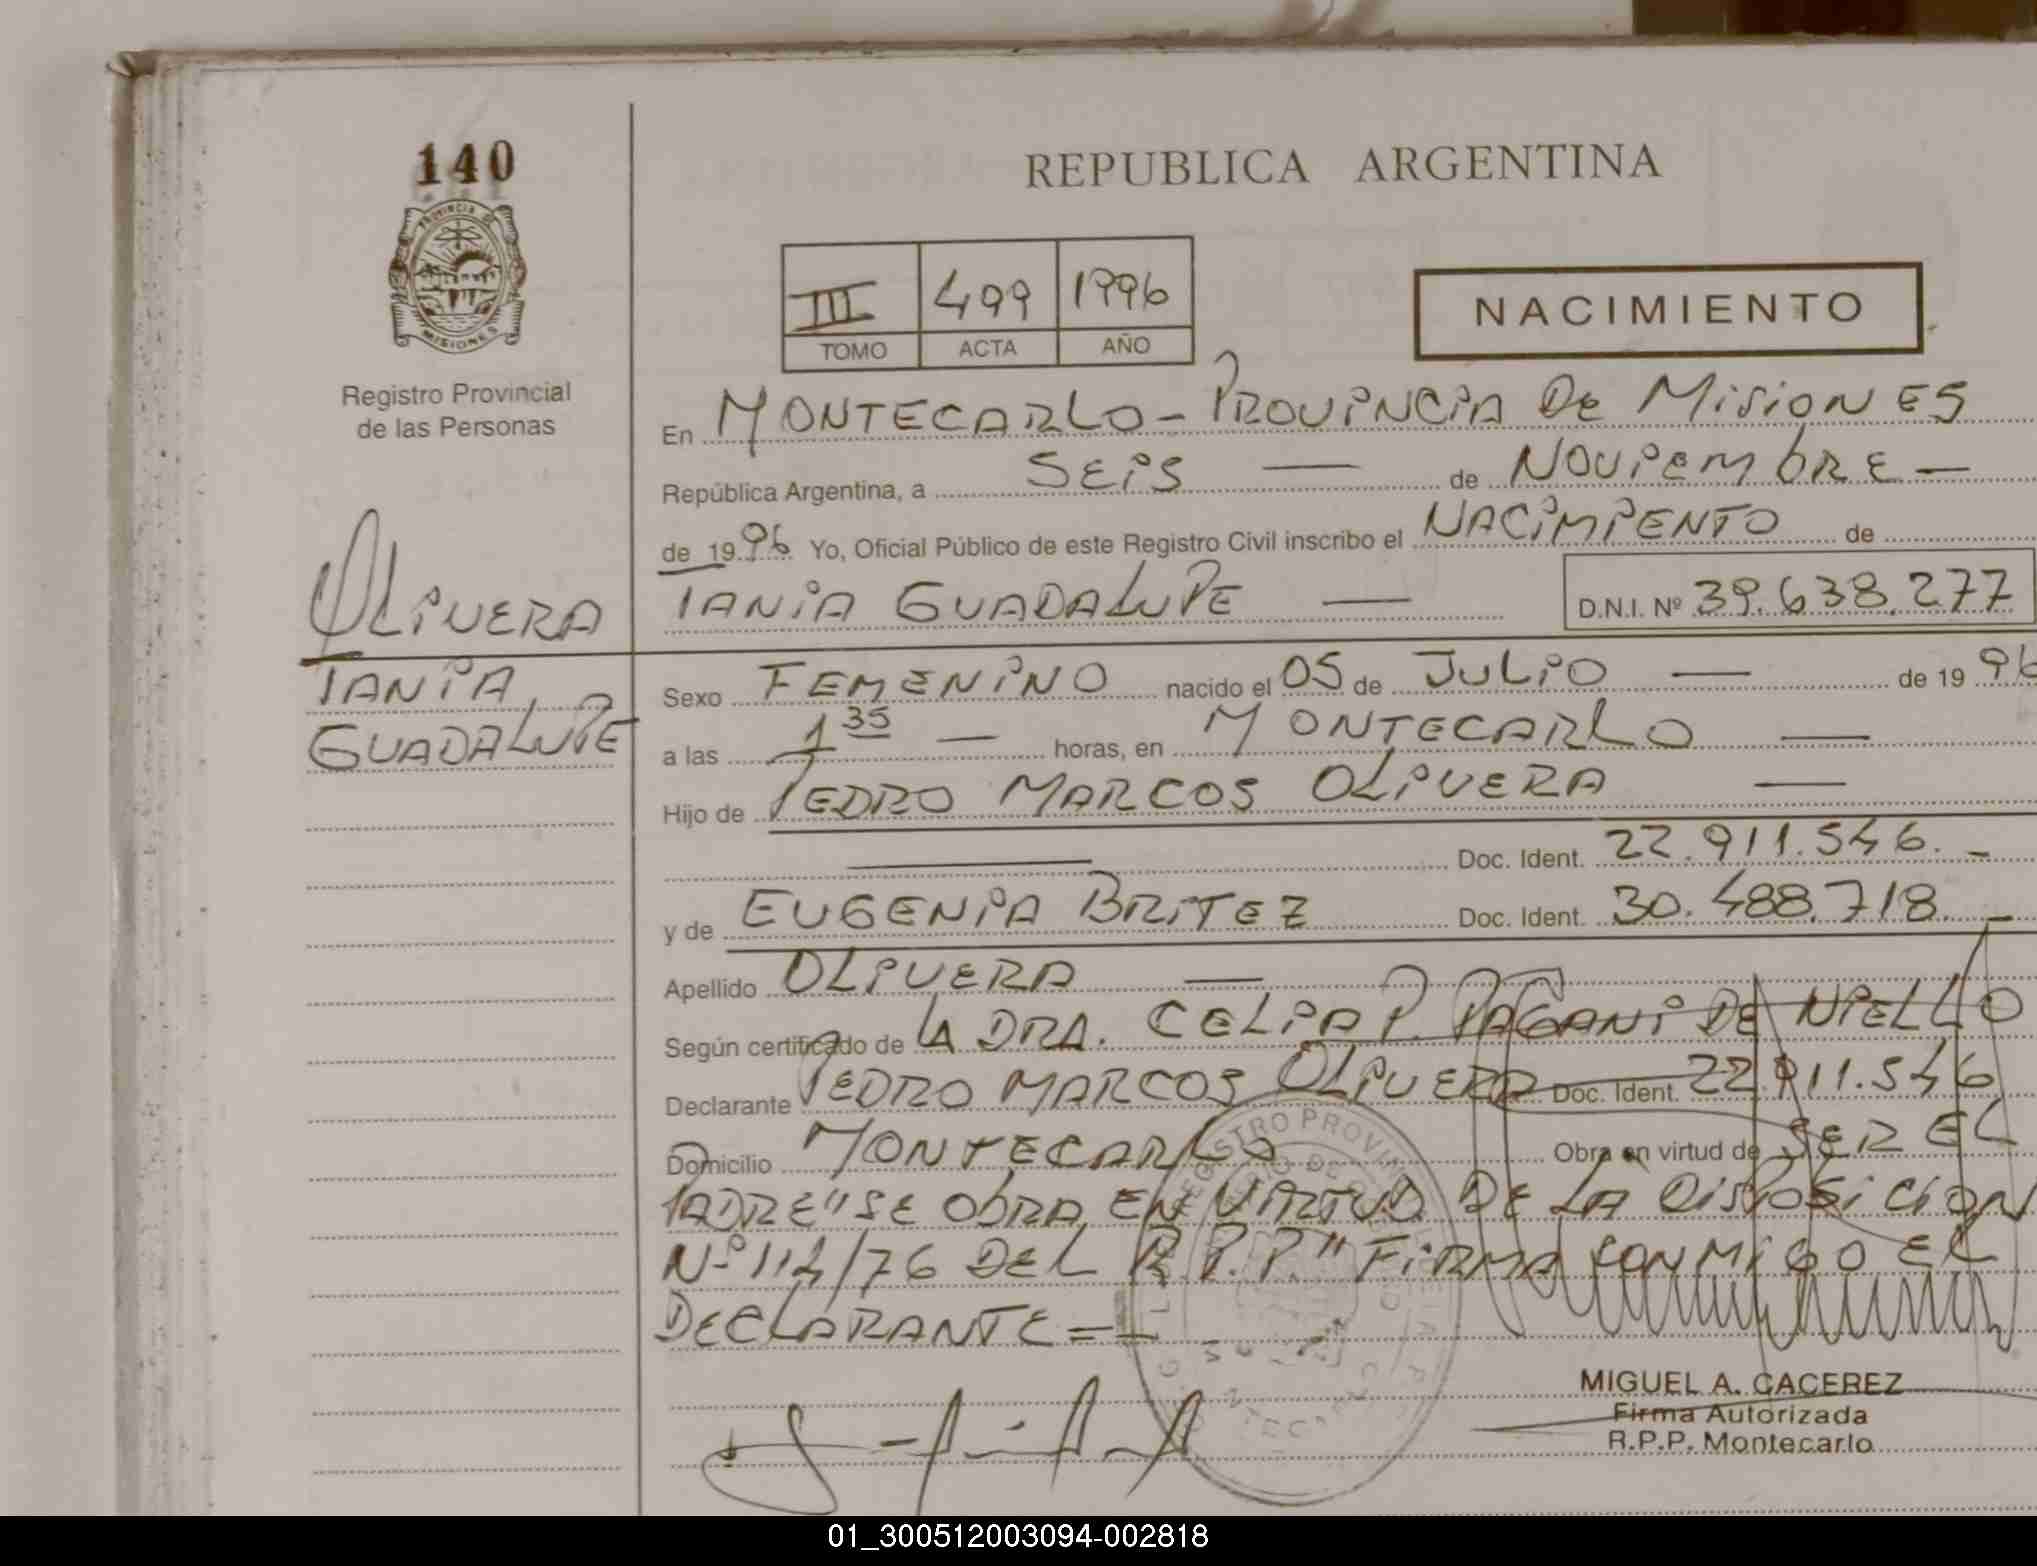 140
PROVINCIA DE
MISIONES
Registro Provincial
de las Personas
OLIVERA
TANIA
GUADALUPE
REPUBLICA ARGENTINA
III 499 1996
TOMO ACTA AÑO
NACIMIENTO
En MONTECARLO - PROVINCIA De MISIONES
República Argentina, a SEIS — de NOVIEMBRE —
de 1996 Yo, Oficial Público de este Registro Civil inscribo el NACIMIENTO de
TANIA GUADALUPE — D.N.I. Nº 39.638.277
Sexo FEMENINO nacido el 05 de JULIO — de 1996
a las 1 35 — horas, en MONTECARLO —
Hijo de PEDRO MARCOS OLIVERA —
Doc. Ident. 22.911.546. -
y de EUGENIA BRITEZ Doc. Ident. 30.488.718 -
Apellido OLIVERA —
Según certificado de LA DRA. CELIA P. PAGANI DE NIELLO
Declarante PEDRO MARCOS OLIVERA Doc. Ident. 22.911.546
Domicilio MONTECARLO Obra en virtud de SER EL
PADRE "SE OBRA EN VIRTUD DE LA DISPOSICION
Nº 114/76 DEL R.P.P." FIRMA CONMIGO EL
DECLARANTE =—
MIGUEL A. CACEREZ
Firma Autorizada
R.P.P. Montecarlo
01_300512003094-002818